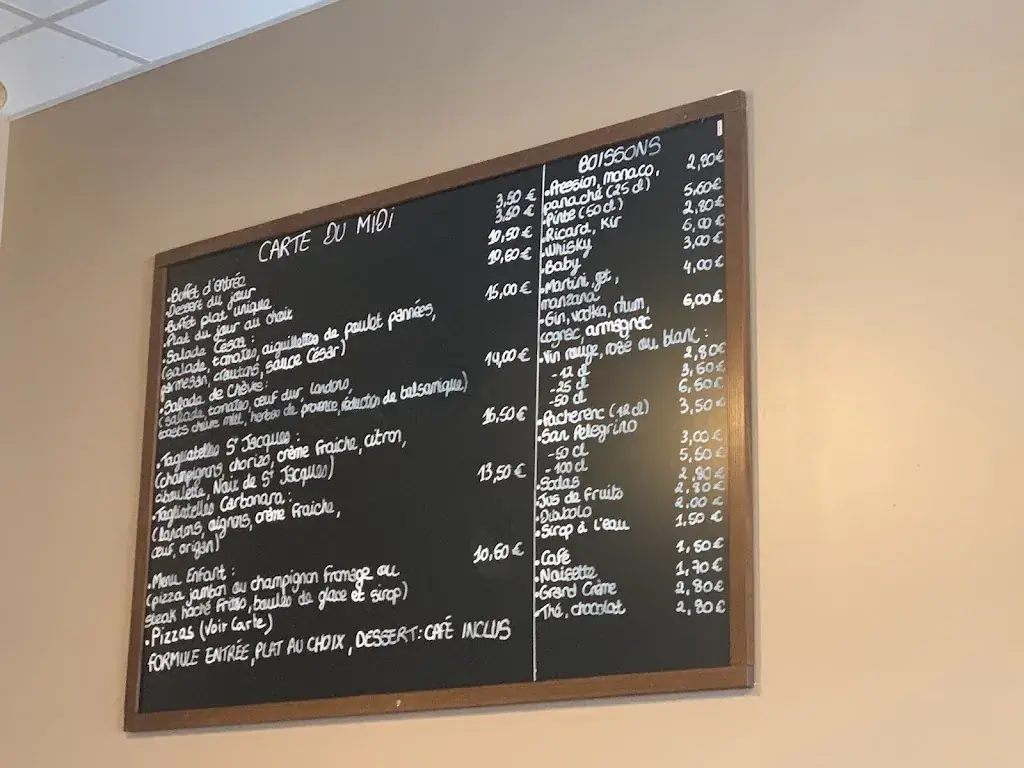 CARTE DU MIDI
• Buffet d'entrée 3,50 €
• Dessert du jour 3,50 €
• Buffet plat unique 10,50 €
• Plat du jour au choix 10,60 €
• Salade César : 15,00 €
(salade, tomates, aiguillettes de poulet pannées,
parmesan, croutons, sauce César)
• Salade de Chèvre : 14,00 €
(salade, tomates, œuf dur, lardons,
toasts chèvre miel, herbes de provence, réduction de balsamique)
• Tagliatelles St Jacques : 16,50 €
(champignons, chorizo, crème fraîche, citron,
ciboulette, Noix de St Jacques)
• Tagliatelles Carbonara : 13,50 €
(lardons, oignons, crème fraîche,
œuf, origan)
• Menu Enfant : 10,60 €
(pizza jambon ou champignon fromage ou
steak haché frites, boules de glace et sirop)
• Pizzas (Voir Carte)
FORMULE ENTRÉE, PLAT AU CHOIX, DESSERT : CAFÉ INCLUS
BOISSONS
• Pression, monaco, 2,80 €
panaché (25 cl)
• Pinte (50 cl) 5,60 €
• Ricard, Kir 2,80 €
• Whisky 6,00 €
• Baby 3,00 €
• Martini, get, 4,00 €
manzana
• Gin, vodka, rhum, 6,00 €
cognac, armagnac
• Vin rouge, rosé ou blanc :
- 12 cl 2,80 €
- 25 cl 3,60 €
- 50 cl 6,60 €
• Pacherenc (12 cl) 3,50 €
• San Pelegrino
- 50 cl 3,00 €
- 100 cl 5,50 €
• Sodas 2,80 €
• Jus de fruits 2,80 €
• Diabolo 2,00 €
• Sirop à l'eau 1,50 €
• Café 1,50 €
• Noisette 1,70 €
• Grand Crème 2,80 €
• Thé, chocolat 2,80 €